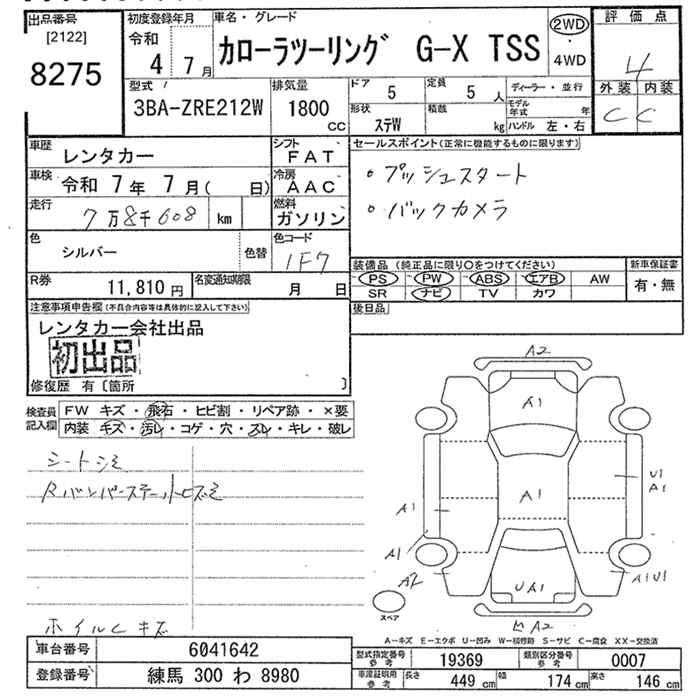 出品番号
[2122]
8275
初度登録年月
令和
4 7月
車名・グレード
カローラツーリング G-X TSS
2WD
・
4WD
評価点
4
外装 内装
C C
型式
3BA-ZRE212W
排気量
1800
CC
ドア 5
定員 5人
形状 ステW
積載 kg
ディーラー・並行
モデル年式 年
ハンドル 左・右
車歴
レンタカー
シフト
FAT
車検 令和 7年 7月( 日)
冷房
AAC
走行
7万8千608 km
燃料
ガソリン
色
シルバー
色替
色コード
1F7
R券 11,810円
名変通知期限
月 日
セールスポイント(正常に機能するものに限ります)
・プッシュスタート
・バックカメラ
装備品(純正品に限り○をつけてください)
PS PW ABS エアB AW
SR ナビ TV カワ
新車保証書
有・無
後日品
注意事項申告欄(不具合内容等は具体的に記入して下さい)
レンタカー会社出品
初出品
修復歴 有〔箇所 〕
検査員記入欄
FW キズ・飛石・ヒビ割・リペア跡・×要
内装 キズ・汚レ・コゲ・穴・スレ・キレ・破レ
シートシミ
Rバンパーステーハレキズ
ホイルC キズ
A2
A1
U1
A1
A1
A1
A1
A2
A1U1
UA1
A2
スペア
A-キズ E-エクボ U-凹み W-補修跡 S-サビ C-腐食 XX-交換済
車台番号 6041642
登録番号 練馬 300 わ 8980
型式指定番号 参考 19369
類別区分番号 参考 0007
車庫証明用 参考 長さ 449cm 幅 174cm 高さ 146cm